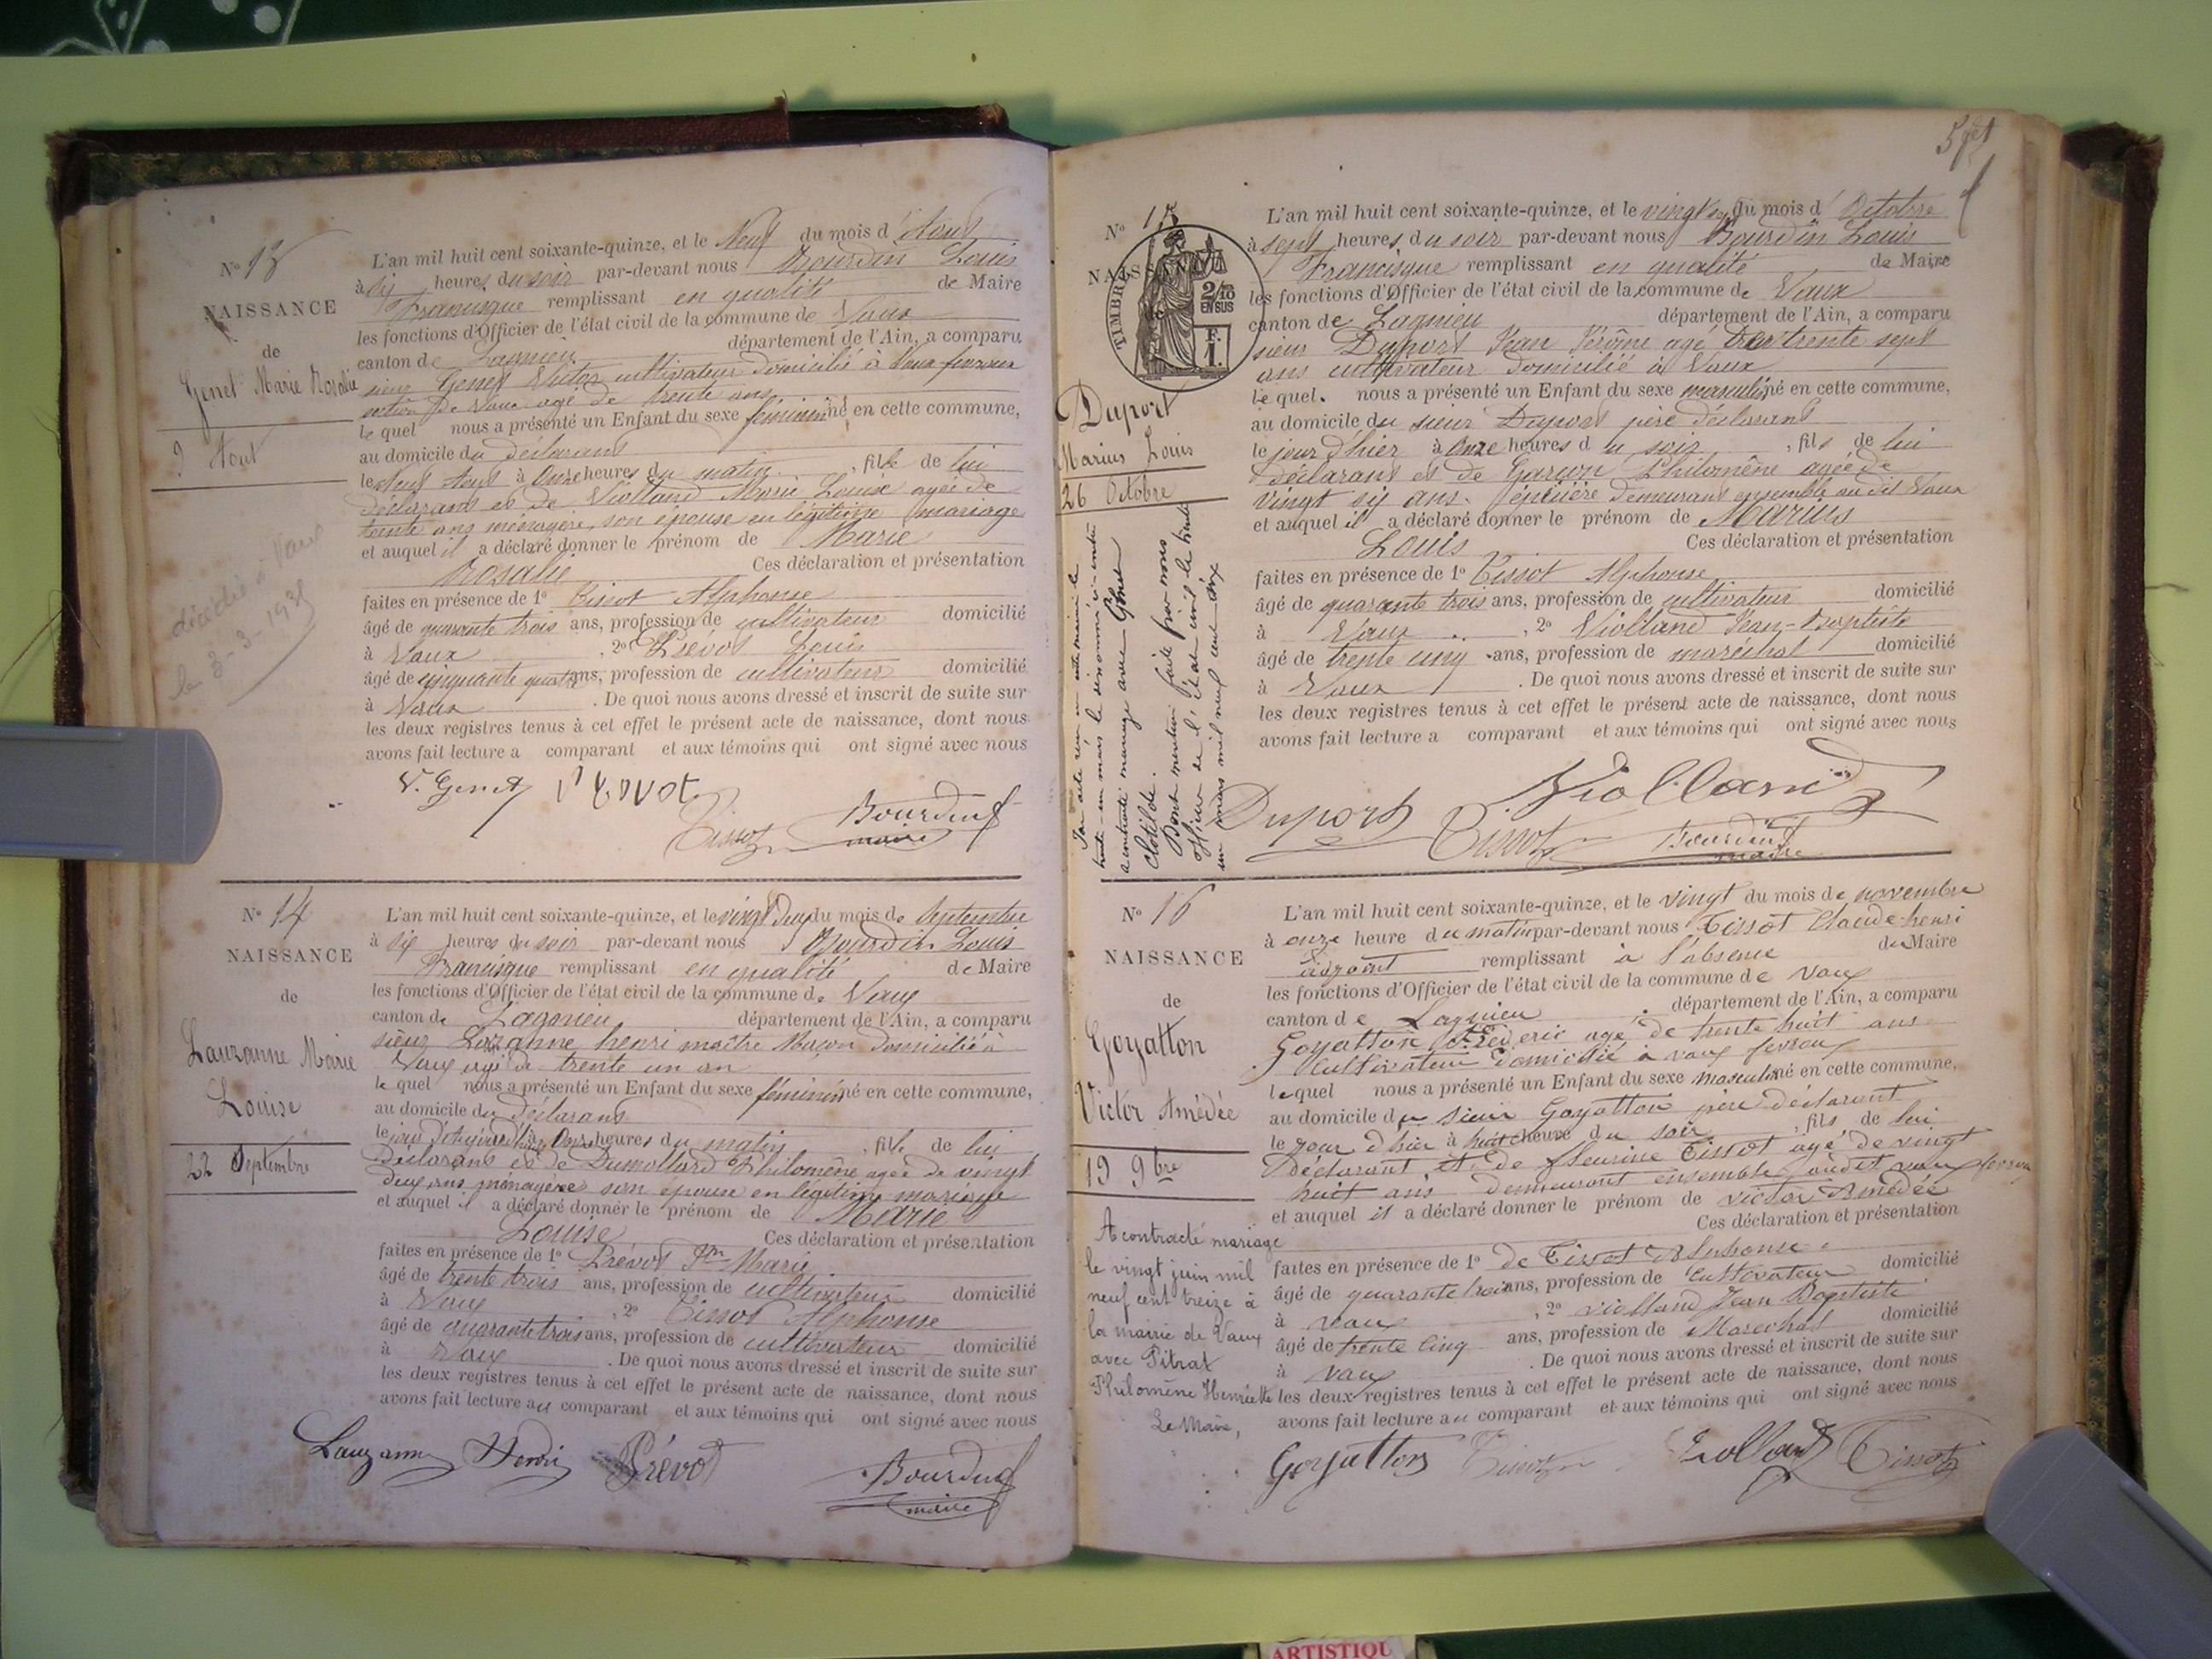 N° 13
NAISSANCE
de
Genet Marie Rosalie
9 Aout
décédée à Vaux
le 3-3-1935
L'an mil huit cent soixante-quinze, et le Neuf du mois d'Aout
à six heures du soir par-devant nous Bourdin Louis
Francisque remplissant en qualité de Maire
les fonctions d'Officier de l'état civil de la commune de Vaux
canton de Lagnieu département de l'Ain, a comparu
sieur Genet Victor cultivateur domicilié à Vaux fevroux
section de Vaux agé de trente ans
le quel nous a présenté un Enfant du sexe féminin né en cette commune,
au domicile du déclarant
le neuf Aout à Onze heures du matin, fille de lui
déclarant et de Violland Marie Louise agée de
trente ans ménagère, son épouse en légitime mariage
et auquel il a déclaré donner le prénom de Marie
Rosalie Ces déclaration et présentation
faites en présence de 1° Tissot Alphonse
âgé de quarante trois ans, profession de cultivateur domicilié
à Vaux, 2° Prévot Louis
âgé de cinquante quatre ans, profession de cultivateur domicilié
à Vaux. De quoi nous avons dressé et inscrit de suite sur
les deux registres tenus à cet effet le présent acte de naissance, dont nous
avons fait lecture a comparant et aux témoins qui ont signé avec nous
V. Genet Prévot
Tissot Bourdin
maire
N° 14
NAISSANCE
de
Lauzanne Marie
Louise
22 Septembre
L'an mil huit cent soixante-quinze, et le vingt deux du mois de Septembre
à six heures du soir par-devant nous Bourdin Louis
Francisque remplissant en qualité de Maire
les fonctions d'Officier de l'état civil de la commune de Vaux
canton de Lagnieu département de l'Ain, a comparu
sieur Lauzanne henri maître Maçon domicilié à
Vaux agé de trente un an
le quel nous a présenté un Enfant du sexe féminin né en cette commune,
au domicile du déclarant
le jour d'Aujourd'hui à Onze heures du matin, fille de lui
déclarant et de Dumollard Philomène agée de vingt
deux ans ménagère son épouse en légitime mariage
et auquel il a déclaré donner le prénom de Marie
Louise Ces déclaration et présentation
faites en présence de 1° Prévot Jn Marie
âgé de trente trois ans, profession de cultivateur domicilié
à Vaux, 2° Tissot Alphonse
âgé de quarante trois ans, profession de cultivateur domicilié
à Vaux. De quoi nous avons dressé et inscrit de suite sur
les deux registres tenus à cet effet le présent acte de naissance, dont nous
avons fait lecture au comparant et aux témoins qui ont signé avec nous
Lauzanne Henri Prévot
Bourdin
maire
N° 15
NAISS
TIMBRE
2/10
EN SUS
F.
1.
Duport
Marius Louis
26 Octobre
a contracté mariage avec Genet
Clotilde.
Dont mention faite par nous
Officier de l'état civil le trente
un mars mil neuf cent dix
L'an mil huit cent soixante-quinze, et le vingt sept du mois d'Octobre
à sept heures du soir par-devant nous Bourdin Louis
Francisque remplissant en qualité de Maire
les fonctions d'Officier de l'état civil de la commune de Vaux
canton de Lagnieu département de l'Ain, a comparu
sieur Duport Jean Jérôme agé de trente sept
ans cultivateur domicilié à Vaux
le quel nous a présenté un Enfant du sexe masculin né en cette commune,
au domicile du sieur Duport père déclarant
le jour d'hier à Onze heures du soir, fils de lui
déclarant et de Garçon Philomène agée de
vingt six ans. épicière demeurant ensemble au dit Vaux
et auquel il a déclaré donner le prénom de Marius
Louis Ces déclaration et présentation
faites en présence de 1° Tissot Alphonse
âgé de quarante trois ans, profession de cultivateur domicilié
à Vaux, 2° Violland Jean-Baptiste
âgé de trente cinq ans, profession de maréchal domicilié
à Vaux. De quoi nous avons dressé et inscrit de suite sur
les deux registres tenus à cet effet le présent acte de naissance, dont nous
avons fait lecture a comparant et aux témoins qui ont signé avec nous
Violland
Duport Tissot Bourdin
maire
N° 16
NAISSANCE
de
Goyatton
Victor Amédée
19 9bre
A contracté mariage
le vingt juin mil
neuf cent treize à
la mairie de Vaux
avec Pitrat
Philomène Henriette
Le Maire,
L'an mil huit cent soixante-quinze, et le vingt du mois de novembre
à onze heure du matin par-devant nous Tissot Claude-henri
adjoint remplissant à l'absence du Maire
les fonctions d'Officier de l'état civil de la commune de Vaux
canton de Lagnieu département de l'Ain, a comparu
Goyatton Fréderic agé de trente huit ans
Cultivateur domicilié à vaux fevroux
lequel nous a présenté un Enfant du sexe masculin né en cette commune,
au domicile du sieur Goyatton père déclarant
le jour d'hier à huit heure du soir, fils de lui
Déclarant et de fleurine Tissot agé de vingt
huit ans demeurant ensemble audit vaux fevroux
et auquel il a déclaré donner le prénom de victor Amédée
Ces déclaration et présentation
faites en présence de 1° de Tissot Alphonse
âgé de quarante trois ans, profession de Cultivateur domicilié
à vaux, 2° violland Jean Baptiste
âgé de trente cinq ans, profession de Marechal domicilié
à vaux. De quoi nous avons dressé et inscrit de suite sur
les deux registres tenus à cet effet le présent acte de naissance, dont nous
avons fait lecture au comparant et aux témoins qui ont signé avec nous
Goyatton Tissot Violland Tissot
ARTISTIQU